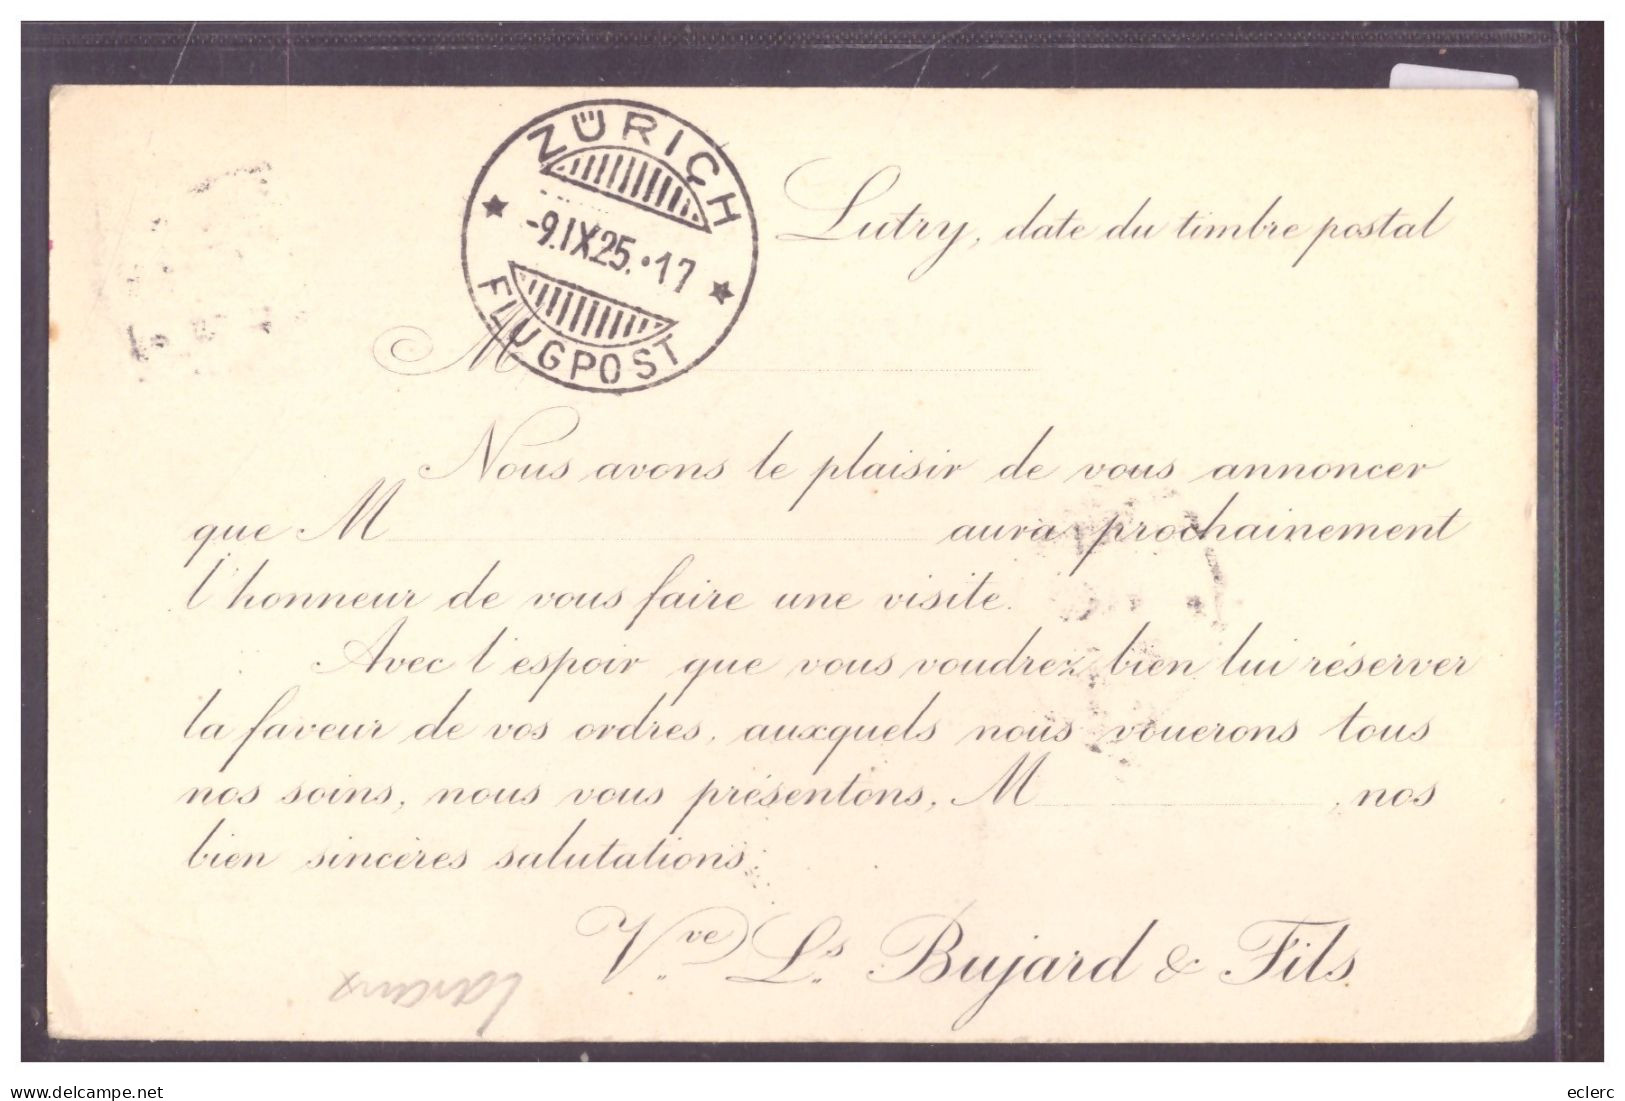 ZÜRICH
-9.IX.25.•17
FLUGPOST
Lutry, date du timbre postal
M
Nous avons le plaisir de vous annoncer
que M aura prochainement
l'honneur de vous faire une visite.
Avec l'espoir que vous voudrez bien lui réserver
la faveur de vos ordres, auxquels nous vouerons tous
nos soins, nous vous présentons, M , nos
bien sincères salutations.
Vve Ls Bujard & Fils
Lavaux
eclerc
www.delcampe.net